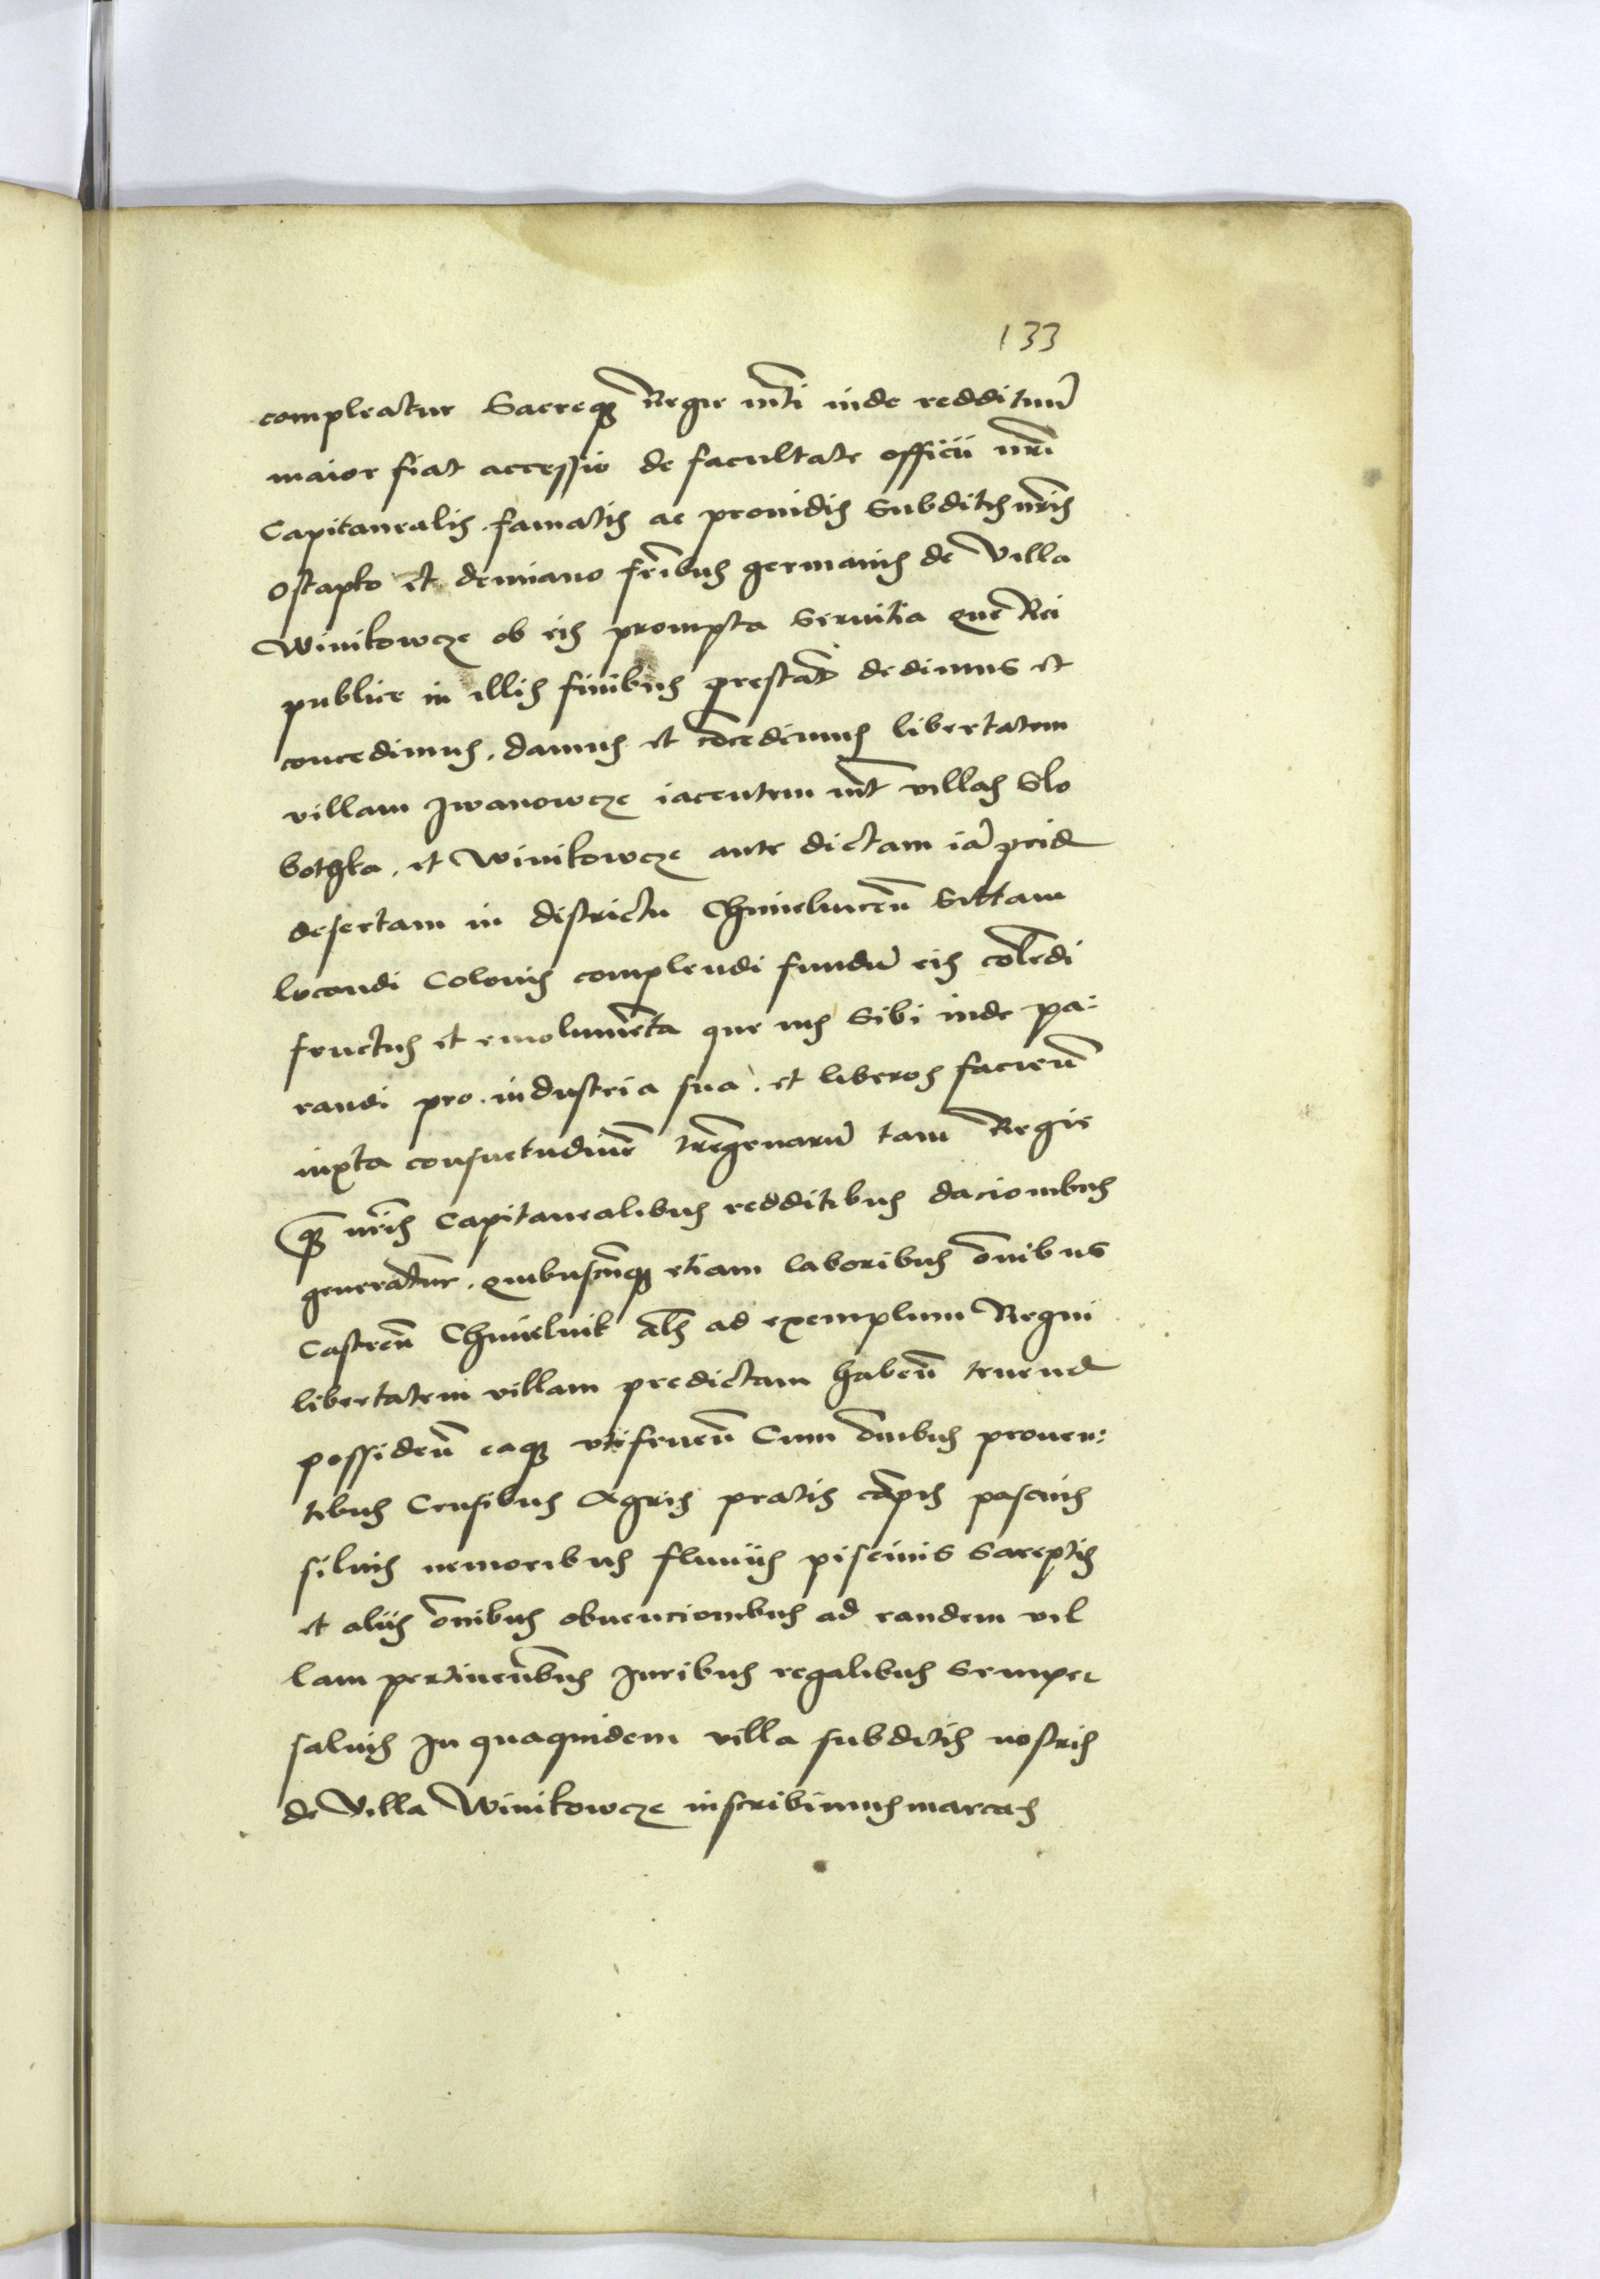 133
compleatur Sacreqz Regie mti inde reddituu
maior fiat accessio de facultate officii nri
Capitanealis famatis ac prouidis Subditis nris
Ostapko et demiano fribus germanis de Villa
Winikowcze ob eis prompta Seruitia que Rei
publice in illis finibus prestat dedimus et
concedimus. damus et cocedimus libertatem
villam Iwanowcze iacentem int villas Slo
bothka. et Winikowcze ante dictam ia prid
desertam in districtu Chmielnicen Sittam
locandi Colonis complendi fundu eis coledi
fructus et emolumeta que uis Sibi inde pa:
randi pro. industria sua. et liberos facien
iuxta consuetudine tregenaru tam Regie
qz nris Capitanealibus redditibus dacionibus
generatur. quibuscuqz etiam laboribus onibus
Castren Chmielnik als ad exemplum Regni
libertatem villam predictam haben tenend
possiden eaqz vtifruen Cum omibus prouen:
tibus Censibus Agris pratis capis pascuis
siluis nemoribus fluuiis piscinis Sareptis
et aliis onibus obuencionibus ad eandem vil
lam pertinenbus Iuribus regalibus Semper
saluis In quaquidem villa subditis nostris
de Villa Winikowcze inscribimus marcas